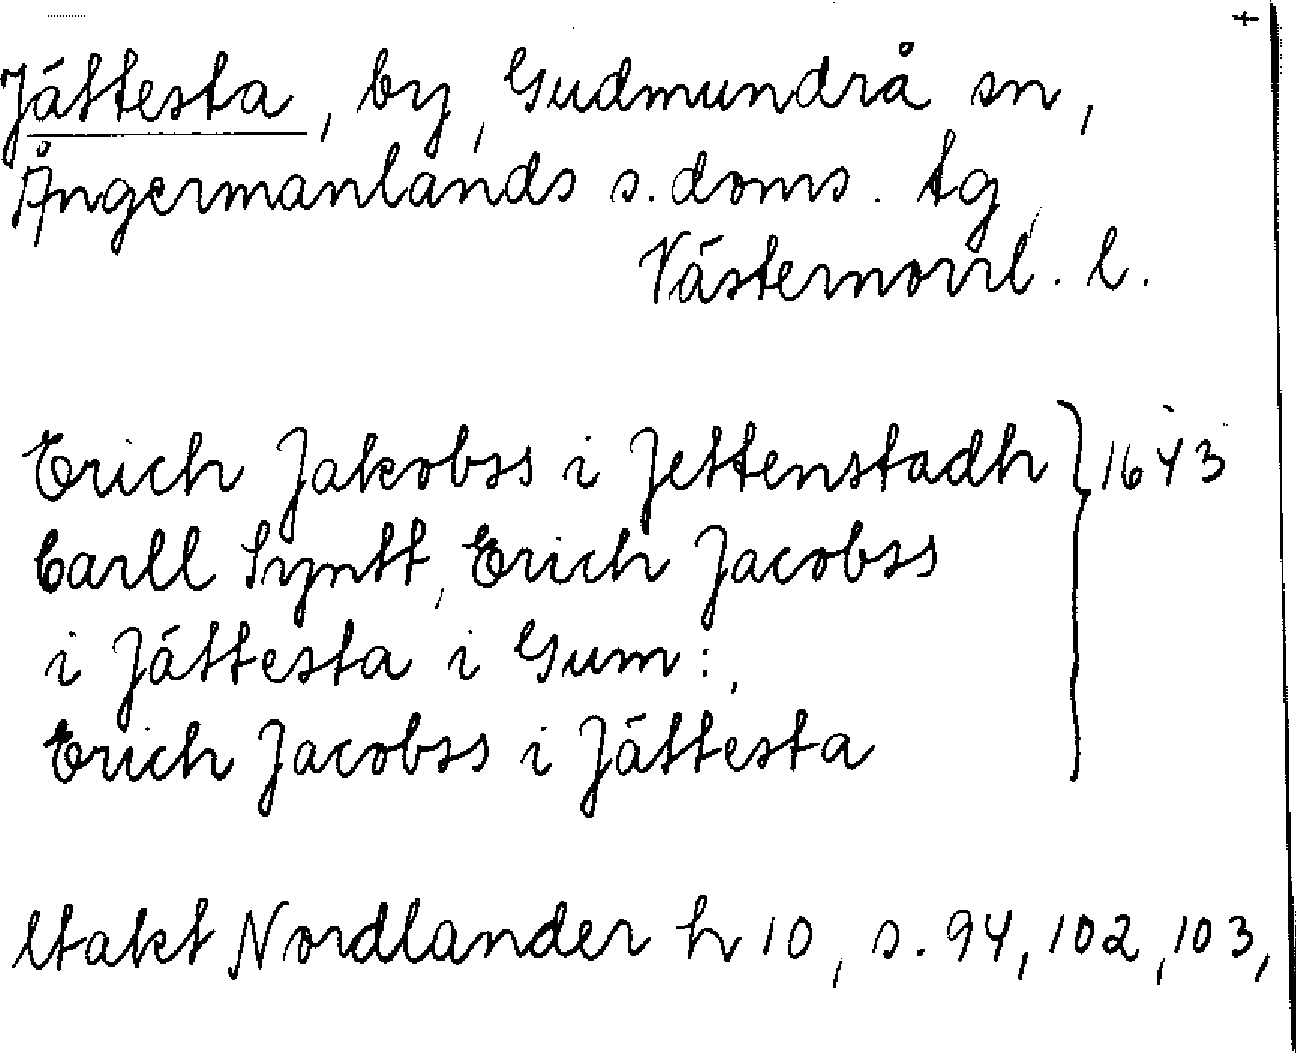 Jättesta, by, Gudmundrå sn,
Ångermanlands s. doms. tg,
Västernorrl. l.
Erich Jakobss i Jettenstadh } 1643
Carll Syntt, Erich Jacobss
i Jättesta i Gum:,
Erich Jacobss i Jättesta
Utakt Nordlander h 10, s. 94, 102, 103,